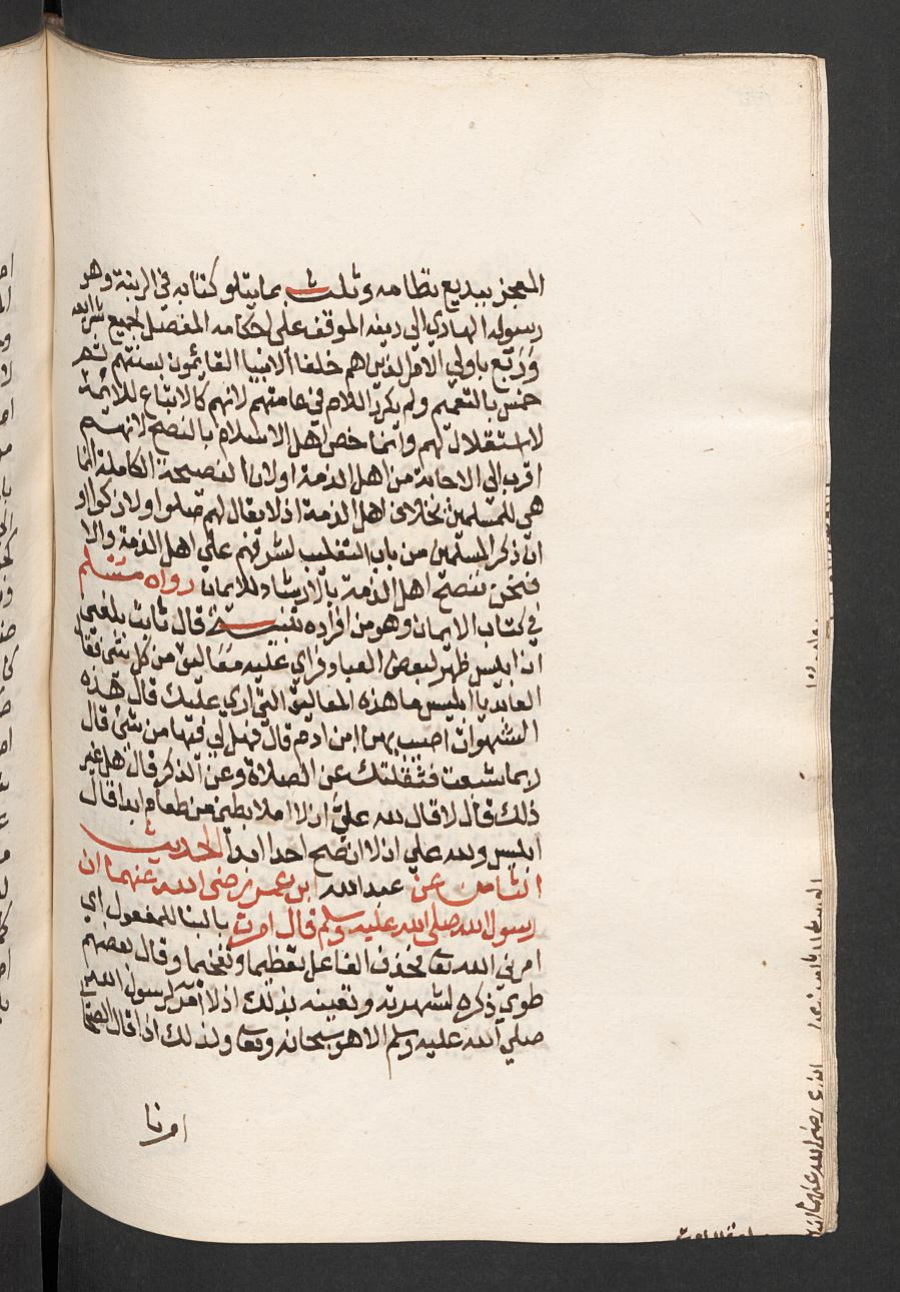 المعجز ببديع نظامه وثلث بما يتلو كتابه في الرتبة وهو
رسوله الهادي الي دينه الموقف على احكامه المفصل لجميع شرائعه
وربع باولي الامر الذين هم خلفا الانبيا القائمون بسنتهم ثم
خمس بالتعميم ولم يكرر اللام في عامتهم لانهم كالاتباع للائمة
لا استقلال لهم وانما خص اهل الاسلام بالنصح لانهم
اقرب الي الاجابة من اهل الذمة او لان النصيحة الكاملة انما
هي للمسلمين بخلاف اهل الذمة اذ لا يقال لهم صلوا ولا زكوا او
ان ذكر المسلمين من باب التغليب لشرفهم علي اهل الذمة والا
فنحن ننصح اهل الذمة بالارشاد للايمان رواه مسلم
في كتاب الايمان وهو من افراده تنبيه قال ثابت بلغني
ان ابليس ظهر لبعض العباد فراي عليه معاليق من كل شئ فقال
العابد يا ابليس ما هذه المعاليق التي اري عليك قال هذه
الشهوات اصيب بهن ابن ادم قال فهل لي فيها من شئ قال
ربما شبعت فثقلتك عن الصلاة وعن الذكر قال هل غير
ذلك قال لا قال لله علي ان لا املا بطني من طعام ابدا قال
ابليس ولله علي ان لا انصح احدا ابدا الحديث
الثامن عن عبد الله ابن عمر رضي الله عنهما ان
رسول الله صلي الله عليه وسلم قال امرت بالبنا للمفعول اي
امرني الله تعا فحذف الفاعل تعظيما وتفخيما وقال بعضهم
طوي ذكره لشهرته وتعينه بذلك اذ لا امر لرسول الله
صلي الله عليه وسلم الا هو سبحانه وتعا ولذلك اذا قال الصحا
امرنا